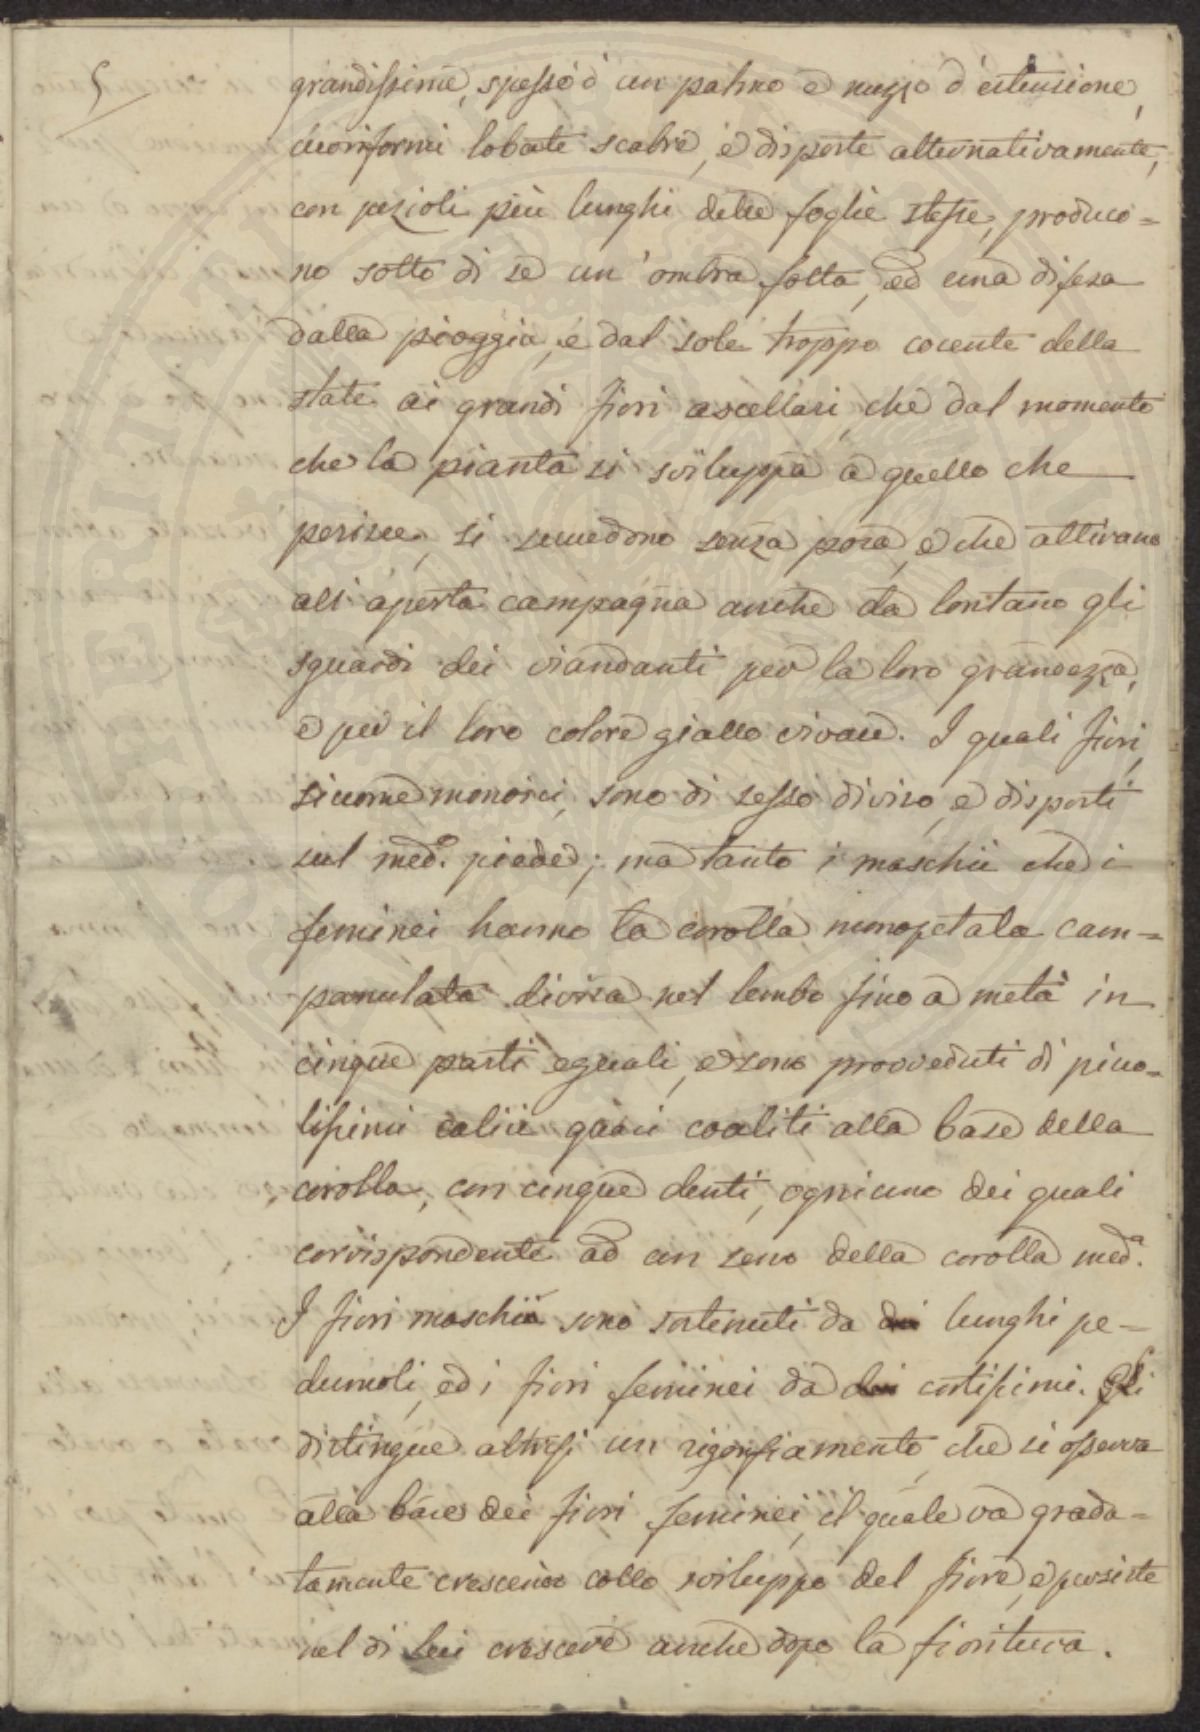 5
grandissime, spesso d'un palmo e mezzo d'estensione,
cuoriformi lobate scabre, e disposte alternativamente,
con pezioli più lunghi delle foglie stesse, produco=
no sotto di se un'ombra folta, ed una difesa
dalla pioggia, e dal sole troppo cocente della
state ai grandi fiori ascellari, che dal momento
che la pianta si sviluppa a quello che
perisce, si succedono senza posa, e che attirano
all'aperta campagna anche da lontano gli
sguardi dei viandanti per la loro grandezza,
e per il loro colore giallo vivace. I quali fiori,
siccome monoici, sono di sesso diviso, e disposti
sul med.o piede; ma tanto i maschii che i
feminei hanno la corolla monopetala cam=
panulata divisa nel lembo fino a metà in
cinque parti eguali, e sono provveduti di picco=
lissimi calici coaliti alla base della
corolla, con cinque denti, ogniuno dei quali
corrispondente ad un seno della corolla med.a
I fiori maschii sono sostenuti da lunghi pe=
duncoli, ed i fiori feminei da cortissimi. Gli
distingue altresì un rigonfiamento, che si osserva
alla base dei fiori feminei, il quale va grada=
tamente crescendo collo sviluppo del fiore, e persiste
nel di lui crescere anche dopo la fioritura.